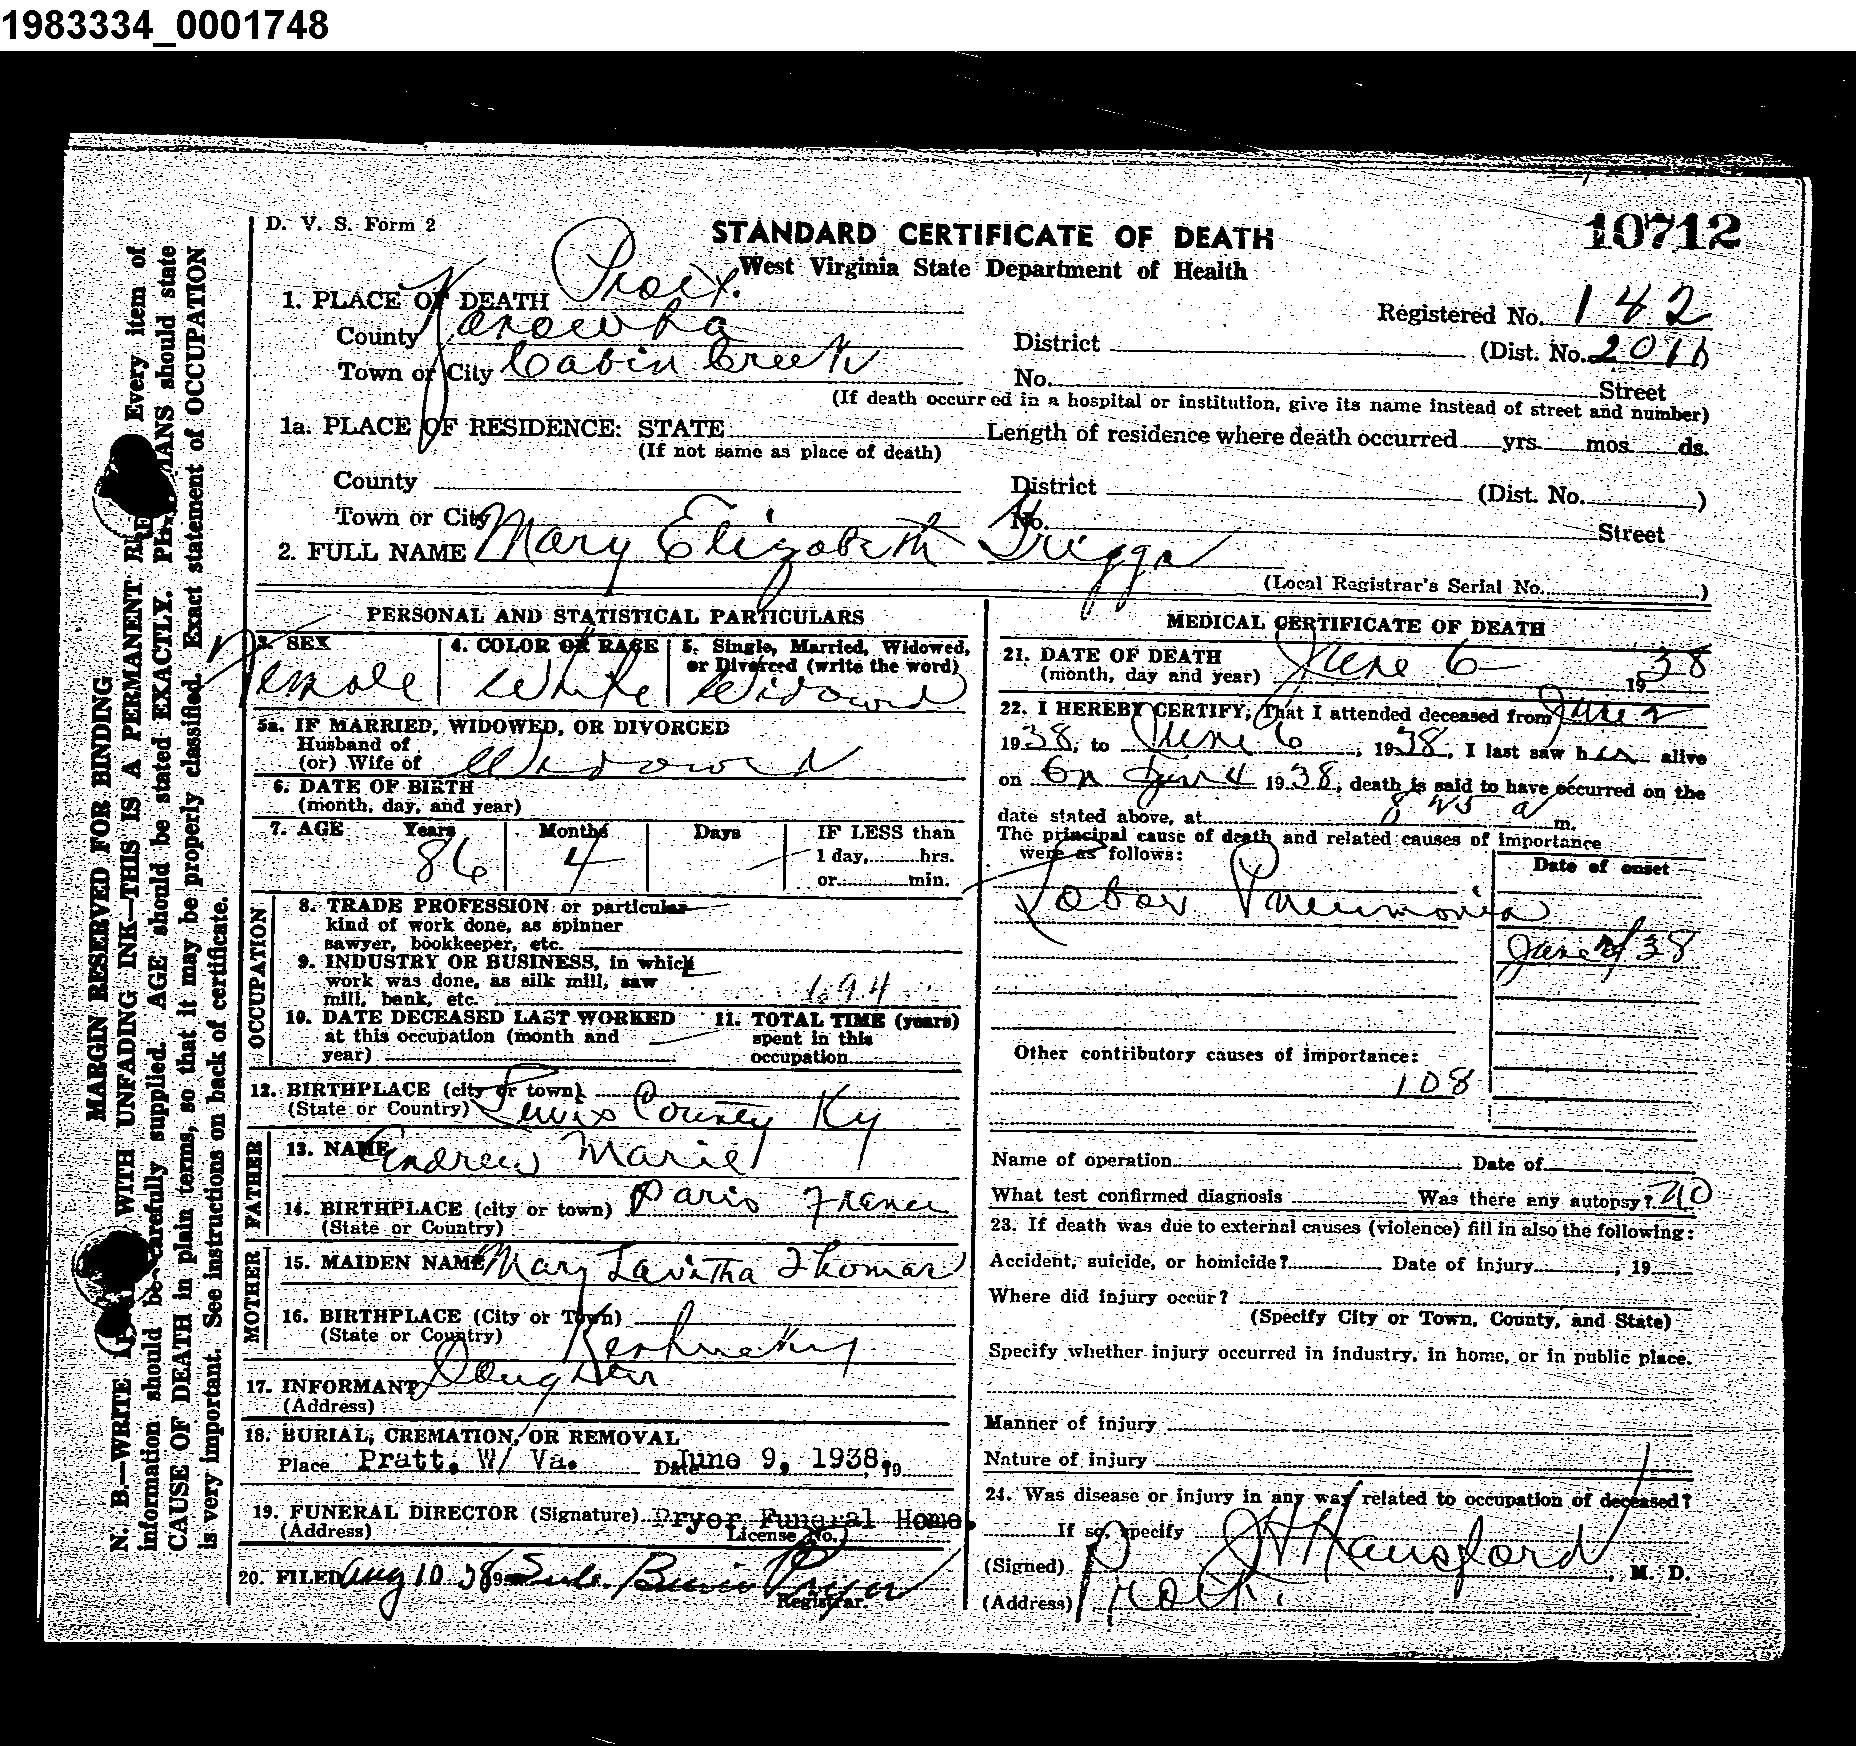 1983334_0001748
D. V. S. Form 2
STANDARD CERTIFICATE OF DEATH
10712
West Virginia State Department of Health
1. PLACE OF DEATH
Registered No. 142
County Kanawha
District (Dist. No. 2011)
Town or City Cabin Creek
No. Street
(If death occurred in a hospital or institution, give its name instead of street and number)
1a. PLACE OF RESIDENCE: STATE Length of residence where death occurred yrs. mos. ds.
(If not same as place of death)
County District (Dist. No. )
Town or City No. Street
2. FULL NAME Mary Elizabeth Triggs
(Local Registrar's Serial No. )
PERSONAL AND STATISTICAL PARTICULARS
3. SEX 4. COLOR OR RACE 5. Single, Married, Widowed, or Divorced (write the word)
Female White Widowed
5a. IF MARRIED, WIDOWED, OR DIVORCED
Husband of
(or) Wife of Widowed
6. DATE OF BIRTH
(month, day, and year)
7. AGE Years Months Days IF LESS than
86 4 1 day, hrs.
or min.
OCCUPATION
8. TRADE PROFESSION or particular
kind of work done, as spinner
sawyer, bookkeeper, etc.
9. INDUSTRY OR BUSINESS, in which
work was done, as silk mill, saw
mill, bank, etc. 194
10. DATE DECEASED LAST WORKED
at this occupation (month and
year)
11. TOTAL TIME (years)
spent in this
occupation
12. BIRTHPLACE (city or town)
(State or Country) Lewis County Ky
FATHER
13. NAME Andrew Mariel
14. BIRTHPLACE (city or town) Paris France
(State or Country)
MOTHER
15. MAIDEN NAME Mary Lavitha Thomas
16. BIRTHPLACE (City or Town)
(State or Country) Kentucky
17. INFORMANT Daughter
(Address)
18. BURIAL, CREMATION, OR REMOVAL
Place Pratt, W/ Va. Date June 9, 1938, 19
19. FUNERAL DIRECTOR (Signature) Pryor Funeral Home.
(Address) License No.
20. FILED Aug 10 38 19 Sub. Pryor
Registrar.
MEDICAL CERTIFICATE OF DEATH
21. DATE OF DEATH
(month, day and year) June 6 1938
22. I HEREBY CERTIFY, That I attended deceased from June 2
1938, to June 6, 1938, I last saw her alive
on 6n June 4 1938, death is said to have occurred on the
date stated above, at 8 45 a m.
The principal cause of death and related causes of importance
were as follows:
Date of onset
Lobar Pneumonia
June 2/38
Other contributory causes of importance:
108
Name of operation Date of
What test confirmed diagnosis Was there any autopsy? no
23. If death was due to external causes (violence) fill in also the following:
Accident, suicide, or homicide? Date of injury , 19
Where did injury occur?
(Specify City or Town, County, and State)
Specify whether injury occurred in industry, in home, or in public place.
Manner of injury
Nature of injury
24. Was disease or injury in any way related to occupation of deceased?
If so, specify
(Signed) J H Hansford, M. D.
(Address)
MARGIN RESERVED FOR BINDING
N. B.—WRITE WITH UNFADING INK—THIS IS A PERMANENT Every item of
information should be carefully supplied. AGE should be stated EXACTLY. should state
CAUSE OF DEATH in plain terms, so that it may be properly classified. Exact statement of OCCUPATION
is very important. See instructions on back of certificate.